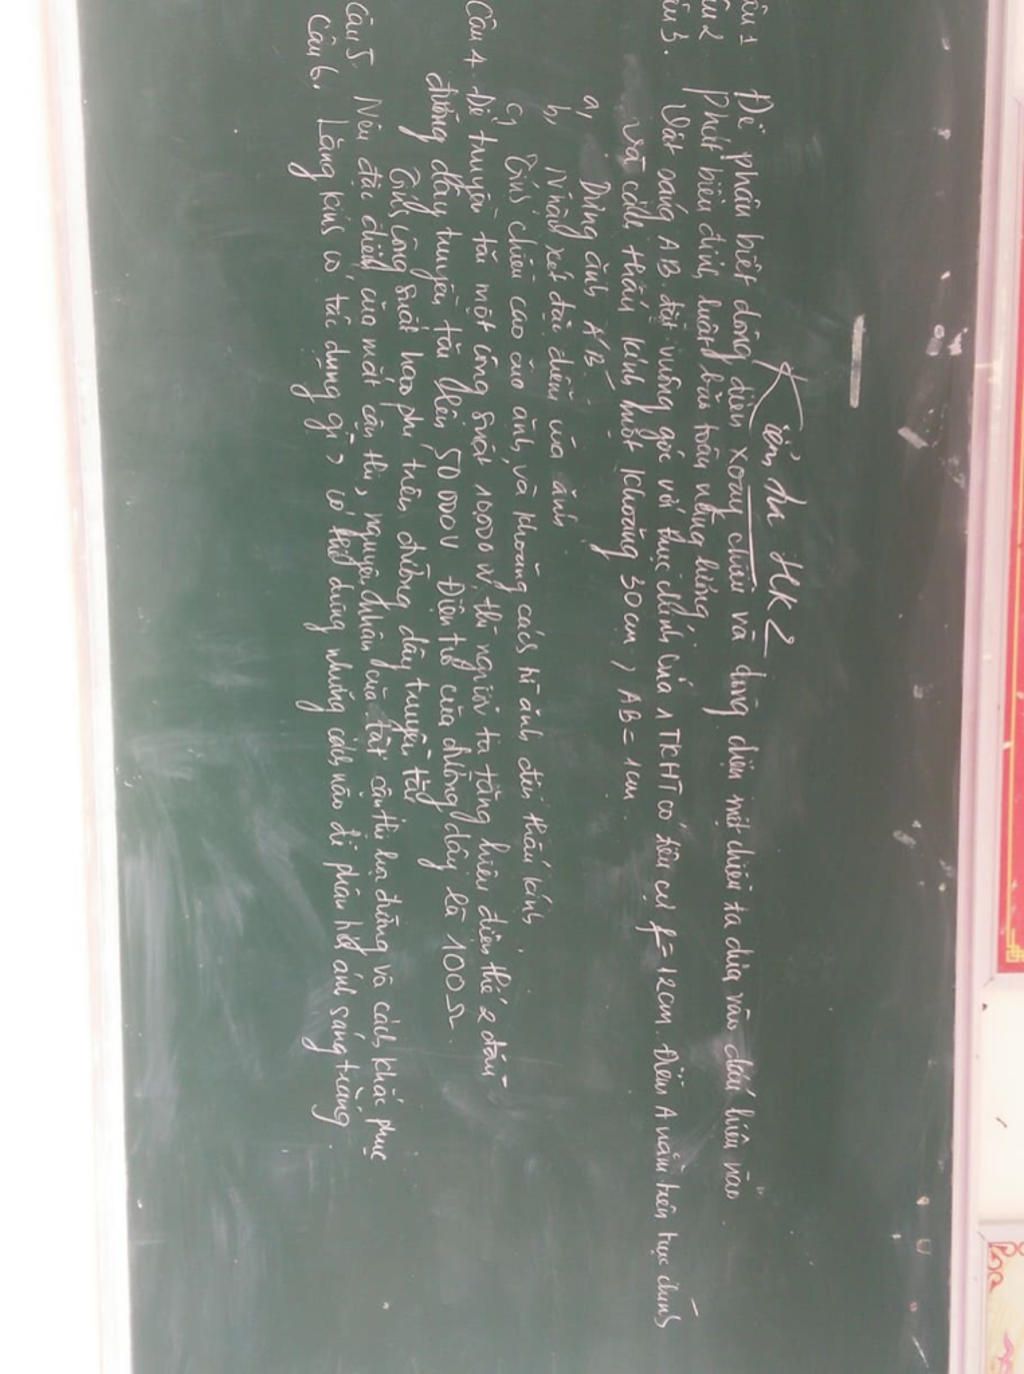 Kiểm tra HK2
Câu 1 Để phân biệt dòng điện xoay chiều và dòng điện một chiều ta dựa vào dấu hiệu nào
Câu 2 Phát biểu định luật bảo toàn năng lượng
Câu 3. Vật sáng AB đặt vuông góc với trục chính của 1 TKHT có tiêu cự f = 12cm. Điểm A nằm trên trục chính
và cách thấu kính một khoảng 30cm, AB = 1cm
a, Dựng ảnh A'B'
b, Nhận xét đặc điểm của ảnh
c, Tính chiều cao của ảnh và khoảng cách từ ảnh đến thấu kính.
Câu 4. Để truyền tải một công suất 10,000W thì người ta tăng hiệu điện thế 2 đầu
đường dây truyền tải lên 50 000V Điện trở của đường dây là 100Ω
Tính công suất hao phí trên đường dây truyền tải
Câu 5. Nêu đặc điểm của mắt cận thị, nguyên nhân của tật cận thị học đường và cách khắc phục
Câu 6. Lăng kính có tác dụng gì, có thể dùng những cách nào để phân tích ánh sáng trắng